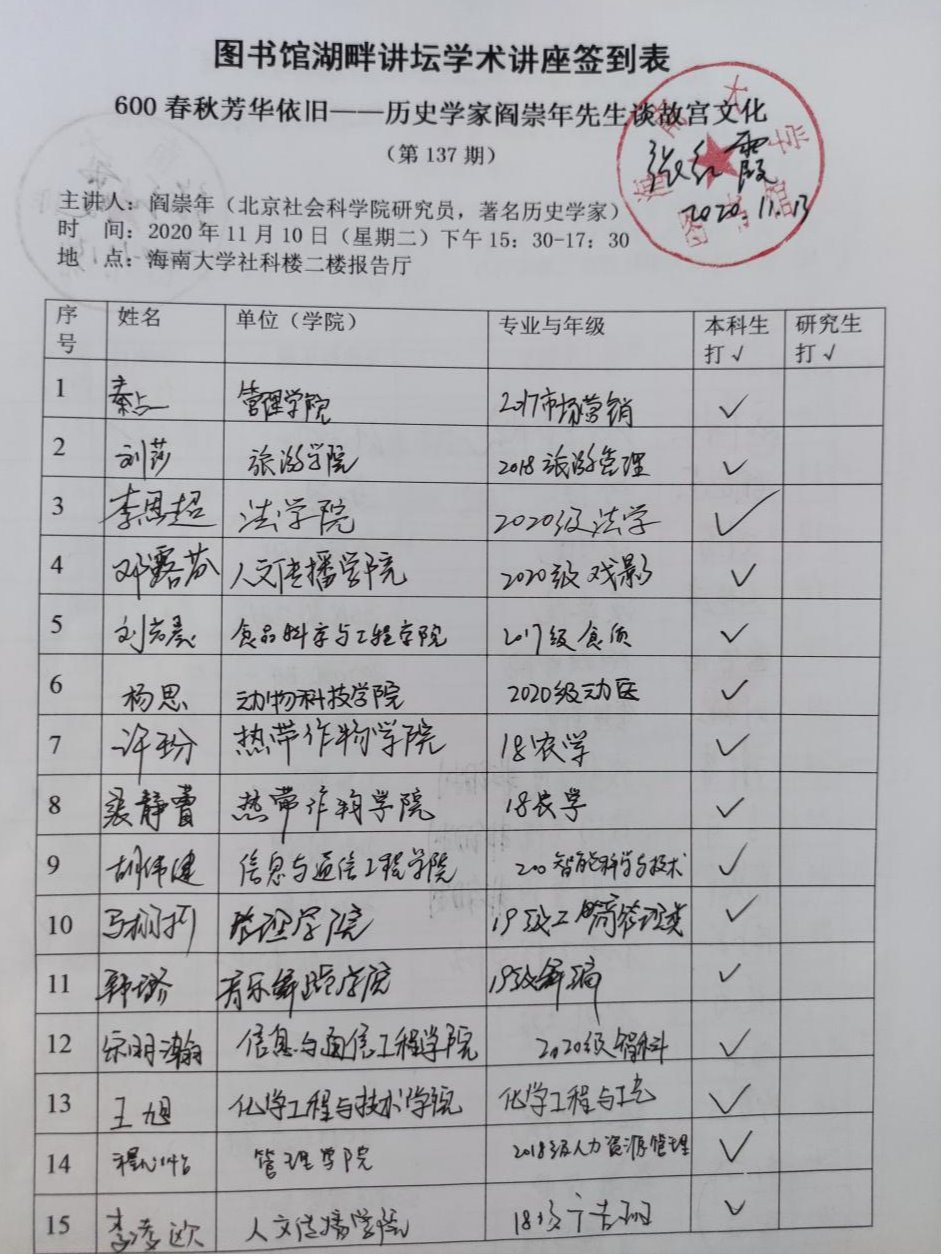 图书馆湖畔讲坛学术讲座签到表
600 春秋芳华依旧——历史学家阎崇年先生谈故宫文化
（第 137 期）
张红霞
2020.11.13
主讲人：阎崇年（北京社会科学院研究员，著名历史学家）
时 间：2020 年 11 月 10 日（星期二）下午 15：30-17：30
地 点：海南大学社科楼二楼报告厅
序号 姓名 单位（学院） 专业与年级 本科生打√ 研究生打√
1 秦占一 管理学院 2017市场营销 √
2 刘莎 旅游学院 2018旅游管理 √
3 李恩超 法学院 2020级法学 √
4 邓露芬 人文传播学院 2020级戏影 √
5 食品科学与工程学院 2017级食质 √
6 杨思 动物科技学院 2020级动医 √
7 许玢 热带作物学院 18农学 √
8 裴静蕾 热带作物学院 18农学 √
9 胡伟健 信息与通信工程学院 智能科学与技术 √
10 管理学院 19级工商管理类 √
11 郭璐 音乐舞蹈学院 19级舞编 √
12 宋明瀚 信息与通信工程学院 2020级智科 √
13 王旭 化学工程与技术学院 化学工程与工艺 √
14 管理学院 2018级人力资源管理 √
15 人文传播学院 18级广告 √